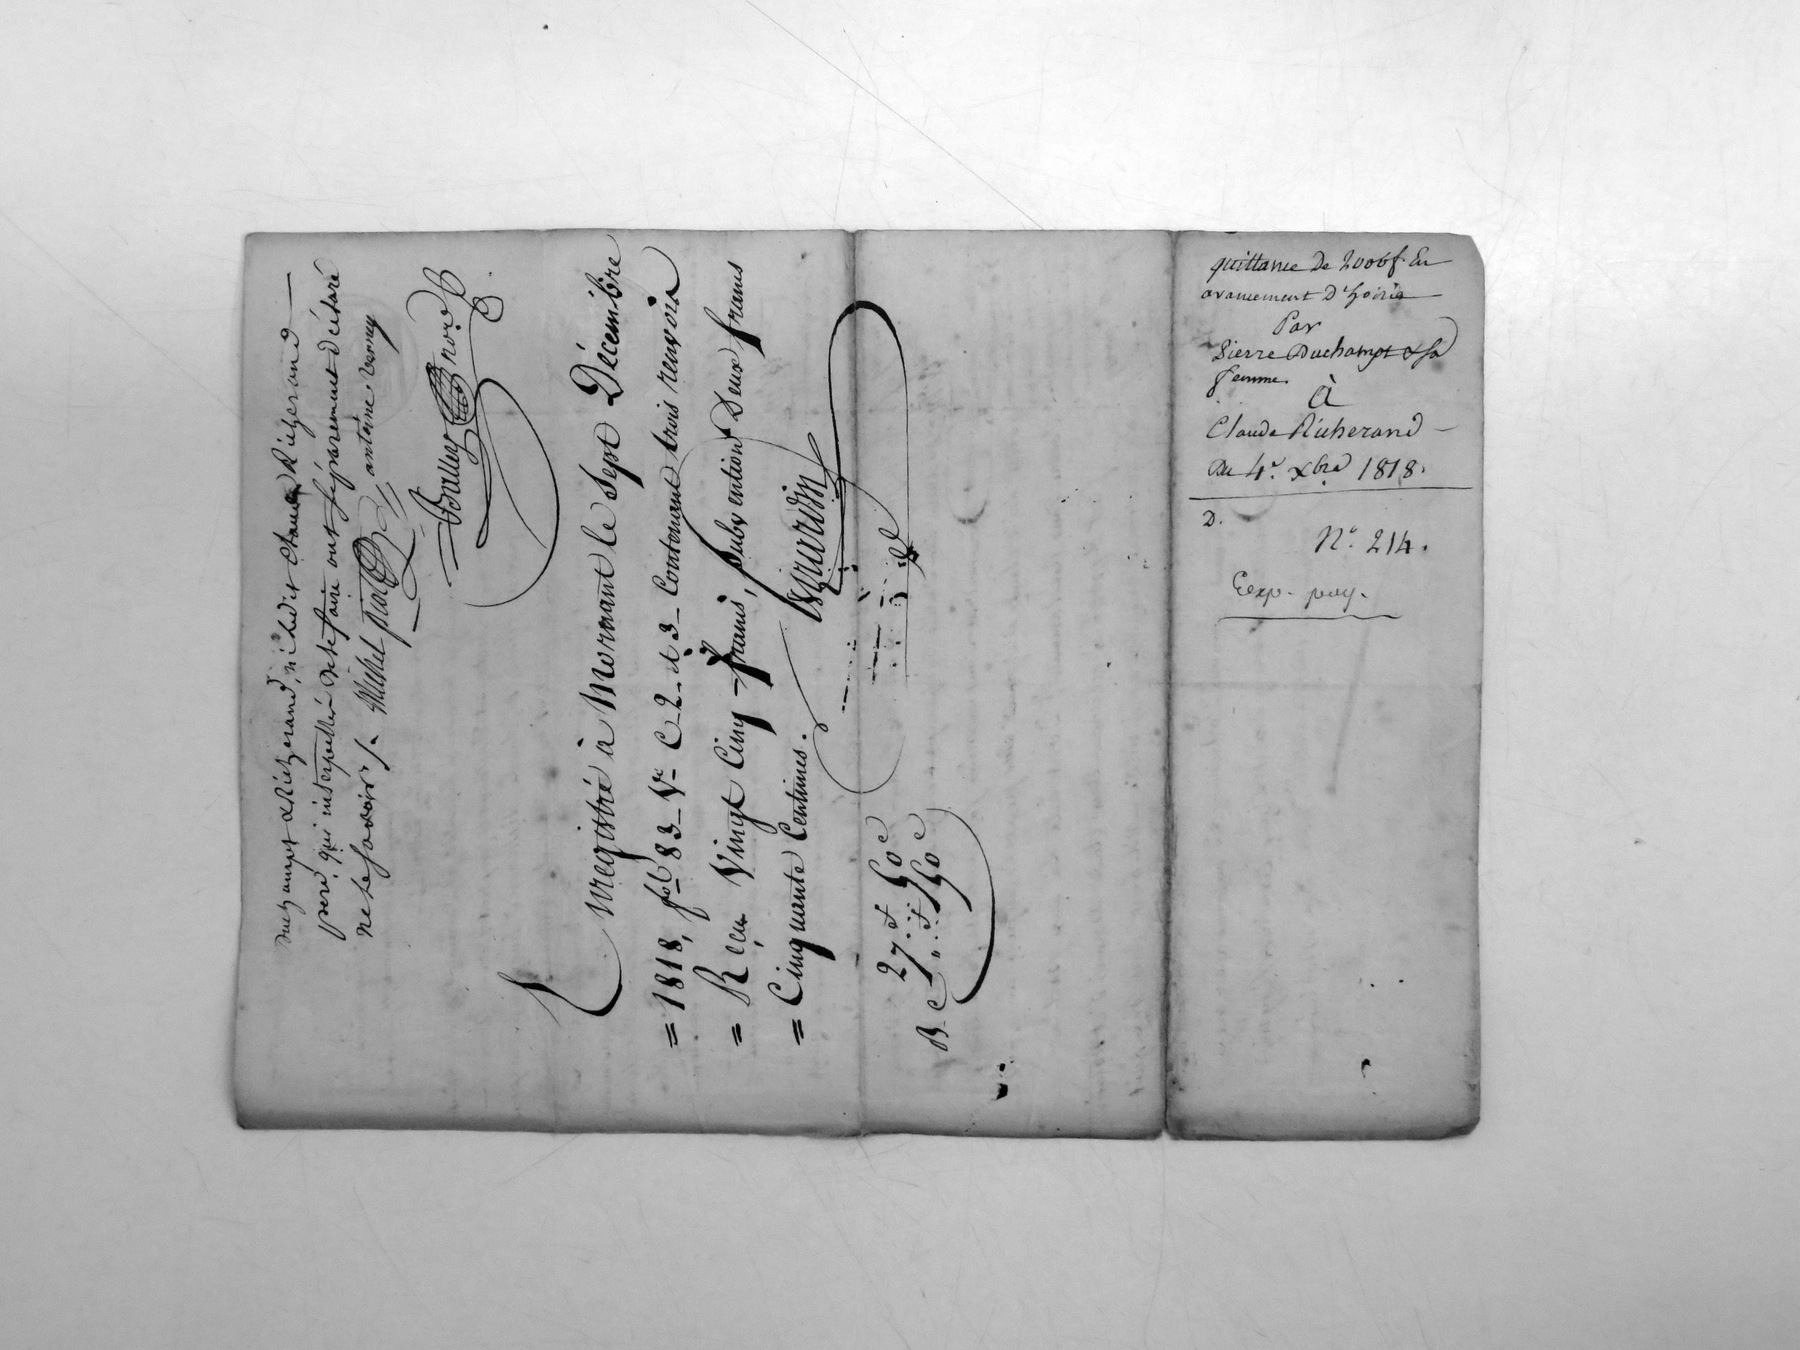 Duchampt & Richerand, ni ledit Claude Richerand
père, qui interpellés de le faire ont séparément déclaré
ne le savoir /.
Michel piot antoine verney
Boullier nore
Enregistré à Mornant le Sept Décembre
= 1818, fol 83 Vo C 2 et 3 Contenant trois renvois
= Reçu Vingt Cinq francs, Subvention Deux francs
= Cinquante Centimes.
Girardin
27f 50c
B C
quittance De 2000f. En
avancement D'hoirie
Par
Pierre Duchampt & Sa
femme.
à
Claude Richerand
Du 4e. xbre 1818.
D.
No. 214.
Exp. pay.